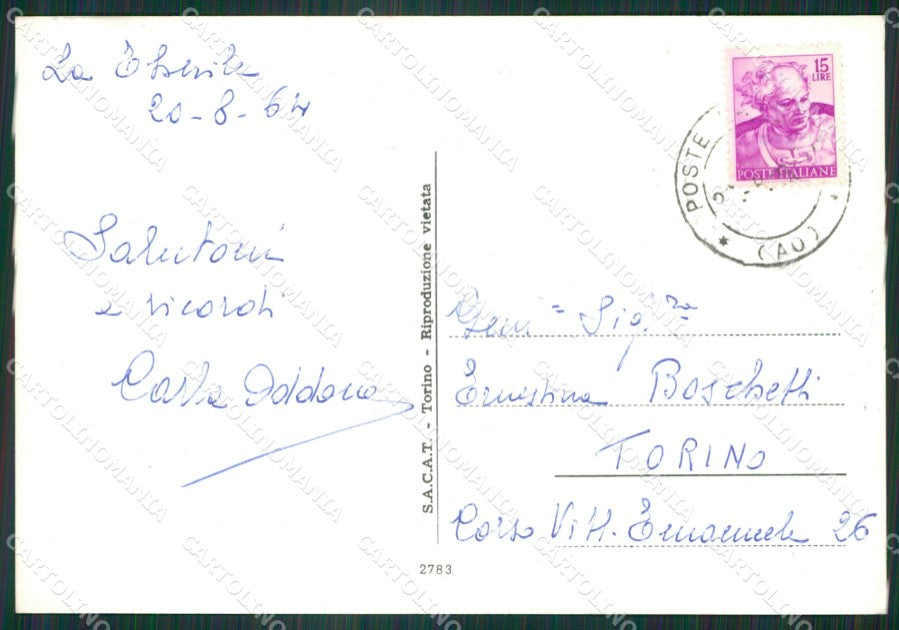 La Thuile
20-8-64
Salutoni
e ricordi
Carla
15
LIRE
POSTE ITALIANE
POSTE
(AO)
S.A.C.A.T. - Torino - Riproduzione vietata
Gen.= Sig.ra
Ernestina Boschetti
TORINO
Corso Vitt. Emanuele 26
2783
CARTOLINOMANIA